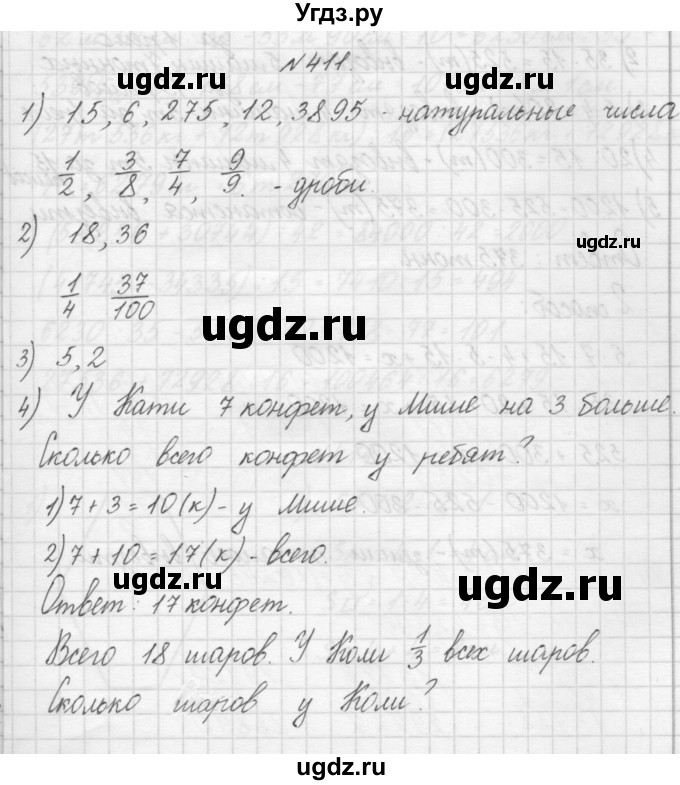 Угдз.ру
№411.
ugdz.ru
ugdz.ru
1) 15, 6, 275, 12, 3895 - натуральные числа
1/2, 3/8, 7/4, 9/9. - дроби.
2) 18, 36
ugdz.ru
1/4 37/100
ugdz.ru
3) 5, 2
4) У Кати 7 конфет, у Миши на 3 больше.
ugdz.ru
ugdz.ru
Сколько всего конфет у ребят?
1) 7 + 3 = 10 (к) - у Миши.
2) 7 + 10 = 17 (к) - всего.
ugdz.ru
ugdz.ru
Ответ: 17 конфет.
Всего 18 шаров. У Коли 1/3 всех шаров.
Сколько шаров у Коли?
ugdz.ru
ugdz.ru